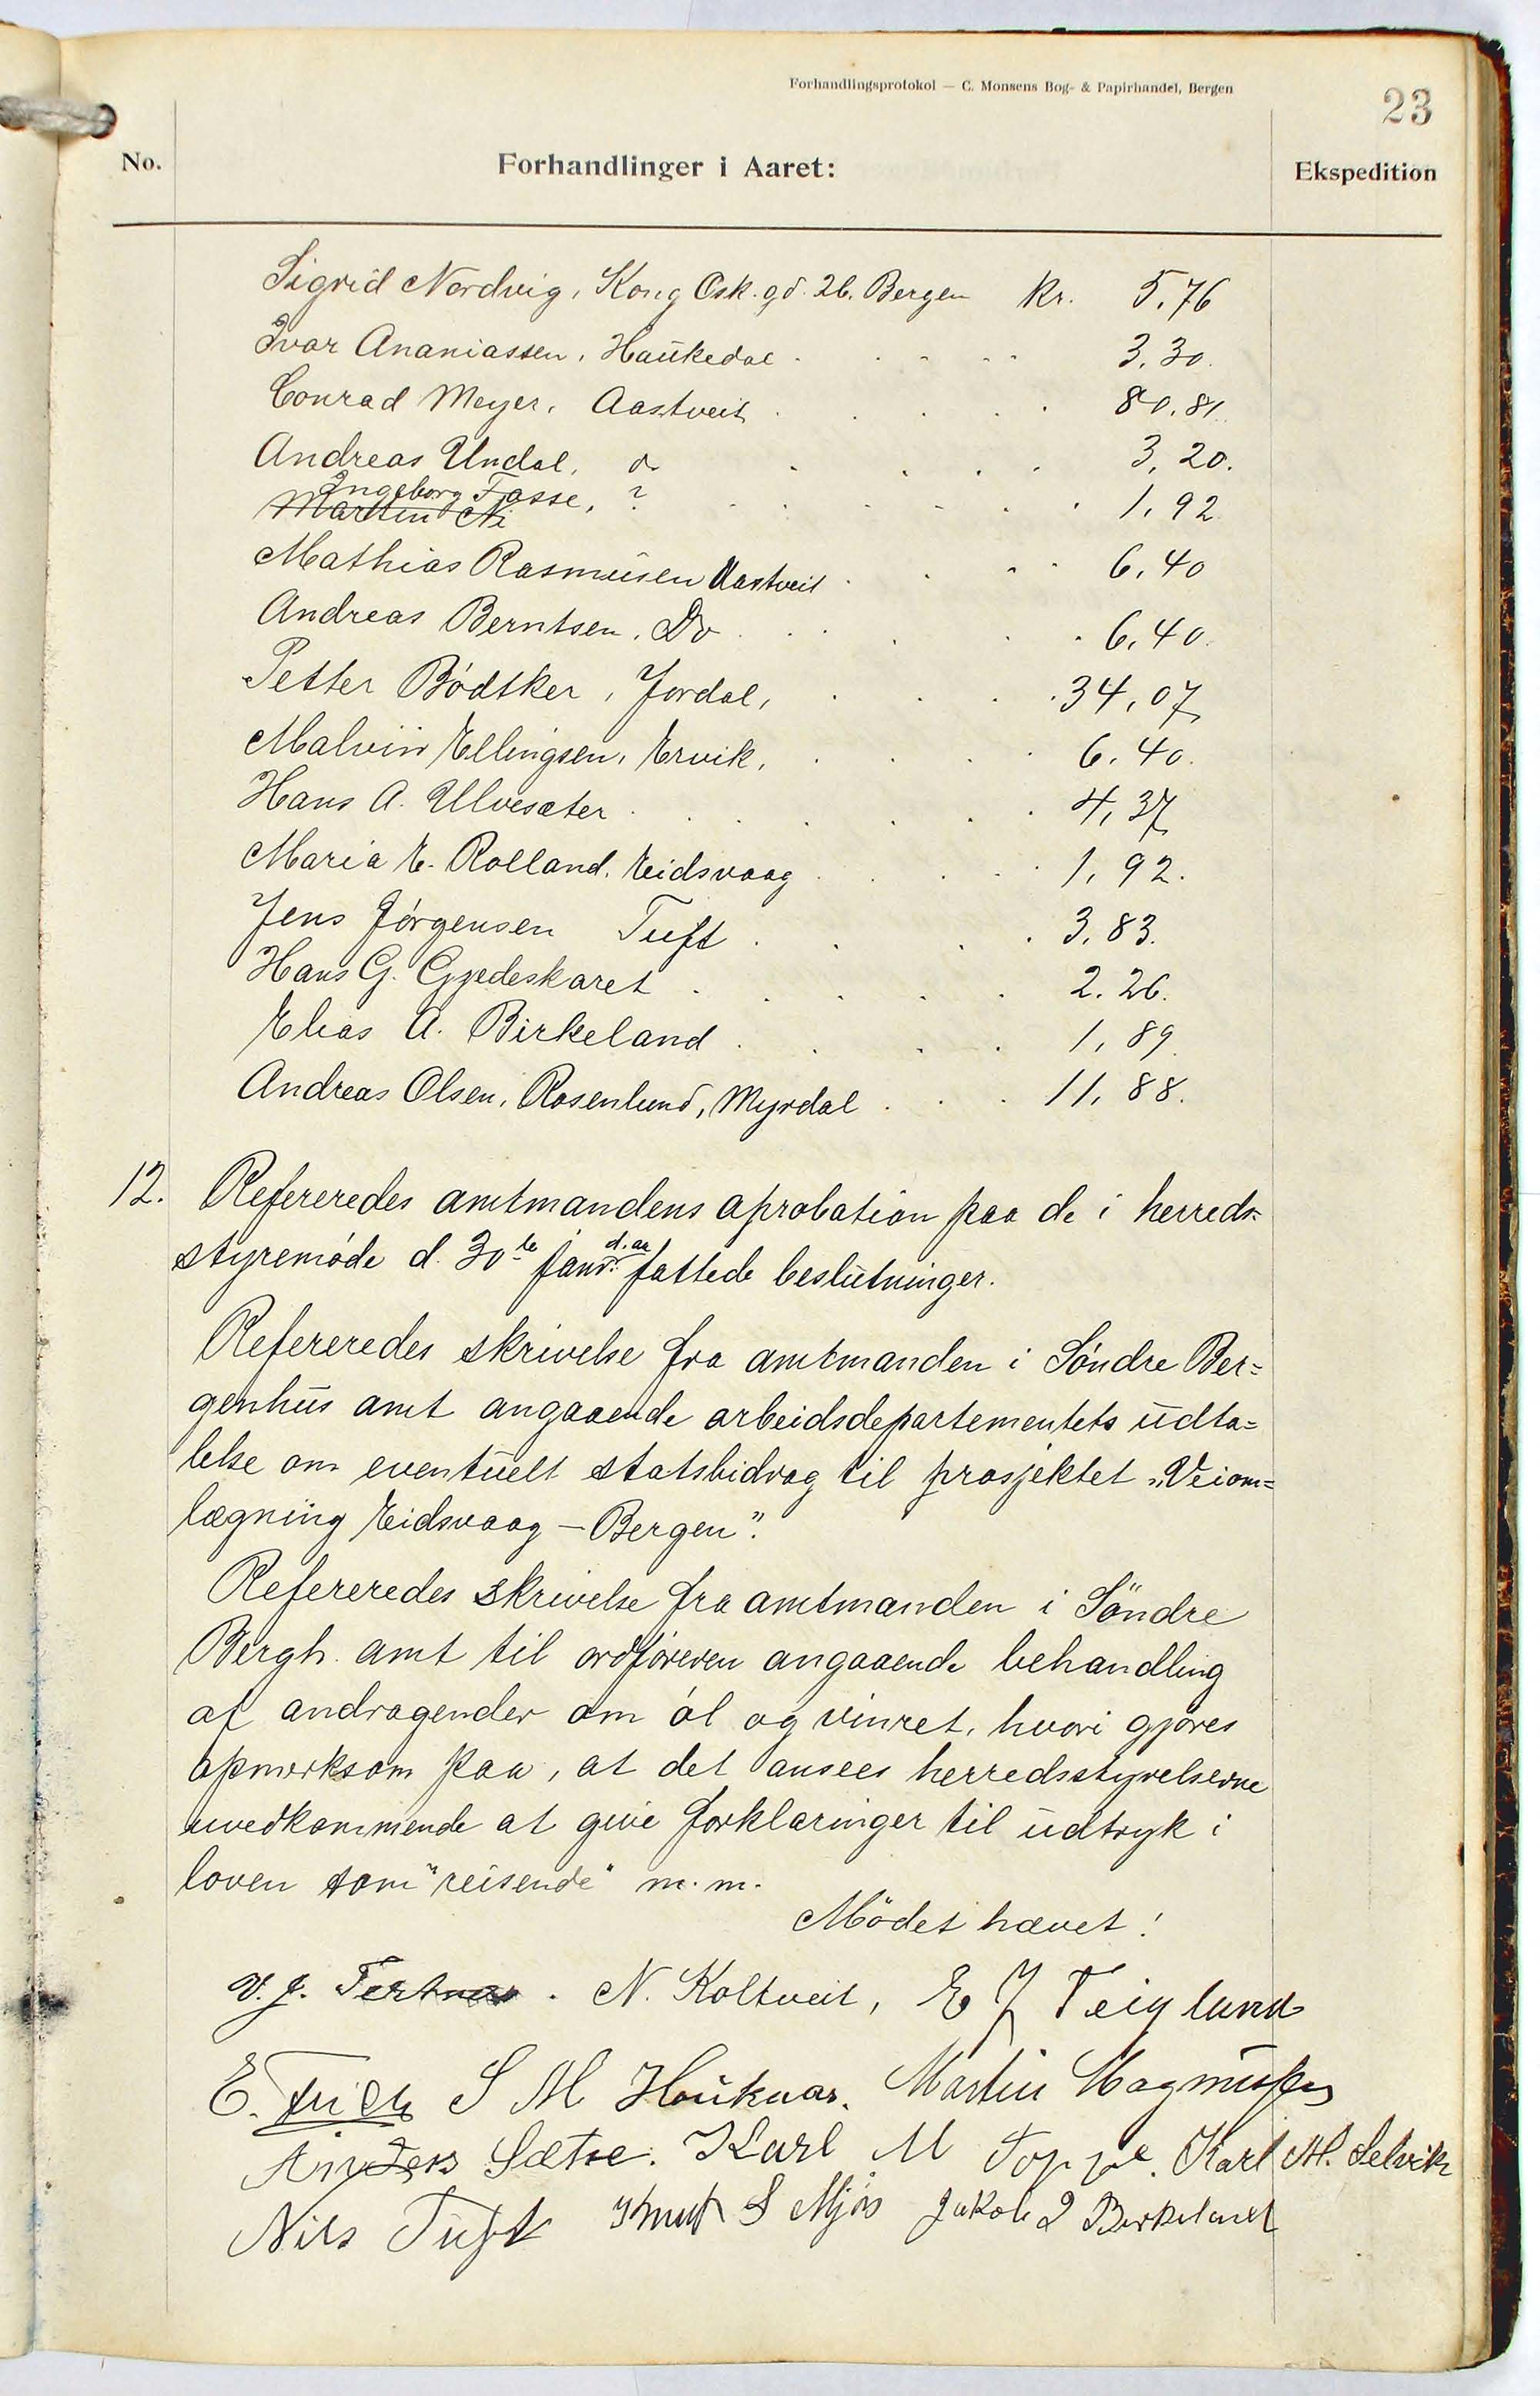 Forhandlingsprotokol — C. Monsens Bog- & Papirhandel, Bergen
23
No. Forhandlinger i Aaret: Ekspedition
Sigrid Nordvig, Kong Osk. gd. 26. Bergen Kr. 5,76
Ivar Ananiassen, Haukedal 3,30.
Conrad Meyer, Aastveit 80,81.
Andreas Undal, do 3,20.
Ingeborg Fasse, ? 1,92
Martin Ni
Mathias Rasmusen Aastveit 6,40
Andreas Berntsen, Do 6,40.
Petter Bödtker, Jordal, 34,07
Malvin Ellingsen, Ervik, 6,40.
Hans A. Ulvesæter 4,37
Maria E. Rolland, Eidsvaag 1,92.
Jens Jörgensen Tuft 3,83.
Hans G. Gjedeskaret 2.26.
Elias A. Birkeland 1,89.
Andreas Olsen, Rosenlund, Myrdal 11,88.
12. Refereredes amtmandens aprobation paa de i herreds-
styremöde d. 30te janr. d. aa fattede beslutninger.
Refereredes skrivelse fra amtmanden i Söndre Ber=
genhus amt angaaende arbeidsdepartementets udta=
lelse om eventuelt statsbidrag til prosjektet „Veiom=
lægning Eidsvaag – Bergen".
Refereredes skrivelse fra amtmanden i Söndre
Bergh. amt til ordföreren angaaende behandling
af andragender om öl og vinret, hvori gjöres
opmerksom paa, at det ansees herredsstyrelserne
uvedkommende at give forklaringer til udtryk i
loven som "reisende" m.m.
Mödet hævet!
V. J. Tertnes. N. Koltveit, E J Teiglund
E. S M Haukaas. Martin Magnussen
Anders Sætre. Karl M Toppe. Karl M. Selvik
Nils Tuft Knut S Mjös Jakob J Birkeland